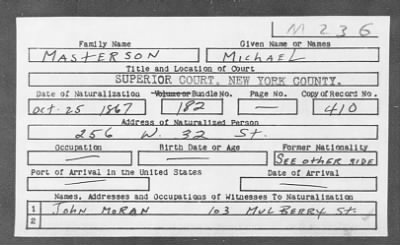 M 236
Family Name Given Name or Names
MASTERSON MICHAEL
Title and Location of Court
SUPERIOR COURT, NEW YORK COUNTY.
Date of Naturalization Volume or Bundle No. Page No. Copy of Record No.
Oct. 25 1867 182 — 410
Address of Naturalized Person
256 W. 32 St.
Occupation Birth Date or Age Former Nationality
— — SEE OTHER SIDE
Port of Arrival in the United States Date of Arrival
— —
Names, Addresses and Occupations of Witnesses To Naturalization
1 JOHN MORAN 103 MULBERRY St.
2